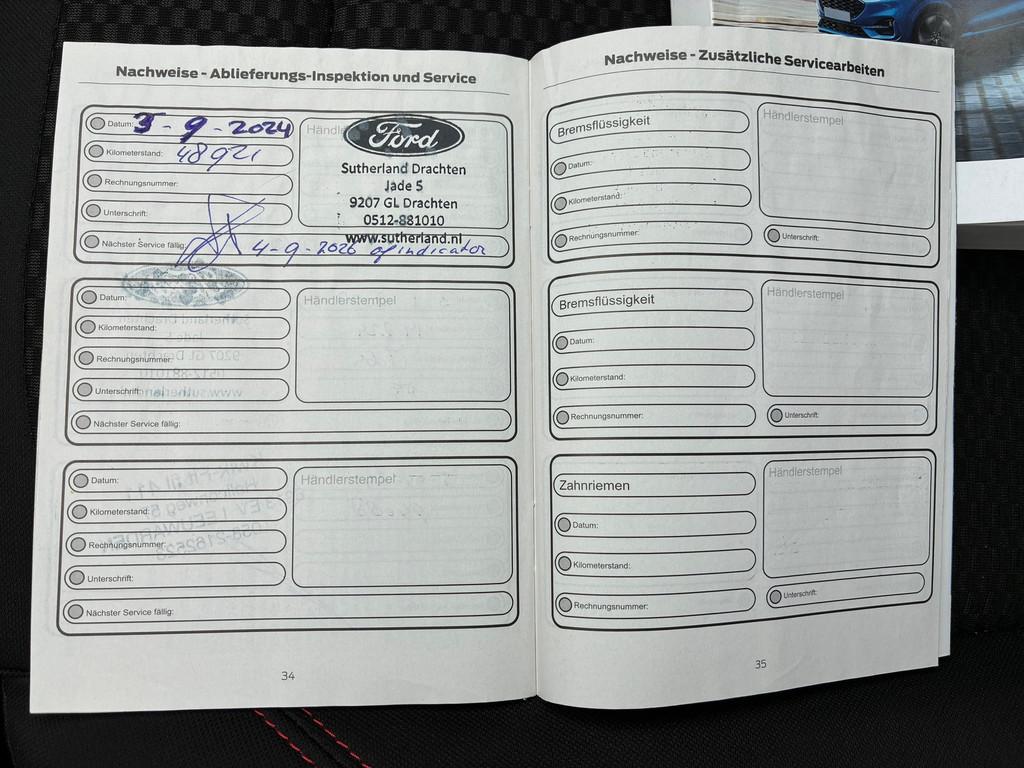 Nachweise - Ablieferungs-Inspektion und Service
Datum: 3-9-2024
Kilometerstand: 48921
Rechnungsnummer:
Unterschrift:
Nächster Service fällig: 4-9-2026 of indicator
Ford
Sutherland Drachten
Jade 5
9207 GL Drachten
0512-881010
www.sutherland.nl
Datum:
Kilometerstand:
Rechnungsnummer:
Unterschrift:
Nächster Service fällig:
Händlerstempel
Datum:
Kilometerstand:
Rechnungsnummer:
Unterschrift:
Nächster Service fällig:
Händlerstempel
34
Nachweise - Zusätzliche Servicearbeiten
Bremsflüssigkeit
Datum:
Kilometerstand:
Rechnungsnummer:
Händlerstempel
Unterschrift:
Bremsflüssigkeit
Datum:
Kilometerstand:
Rechnungsnummer:
Händlerstempel
Unterschrift:
Zahnriemen
Datum:
Kilometerstand:
Rechnungsnummer:
Händlerstempel
Unterschrift:
35